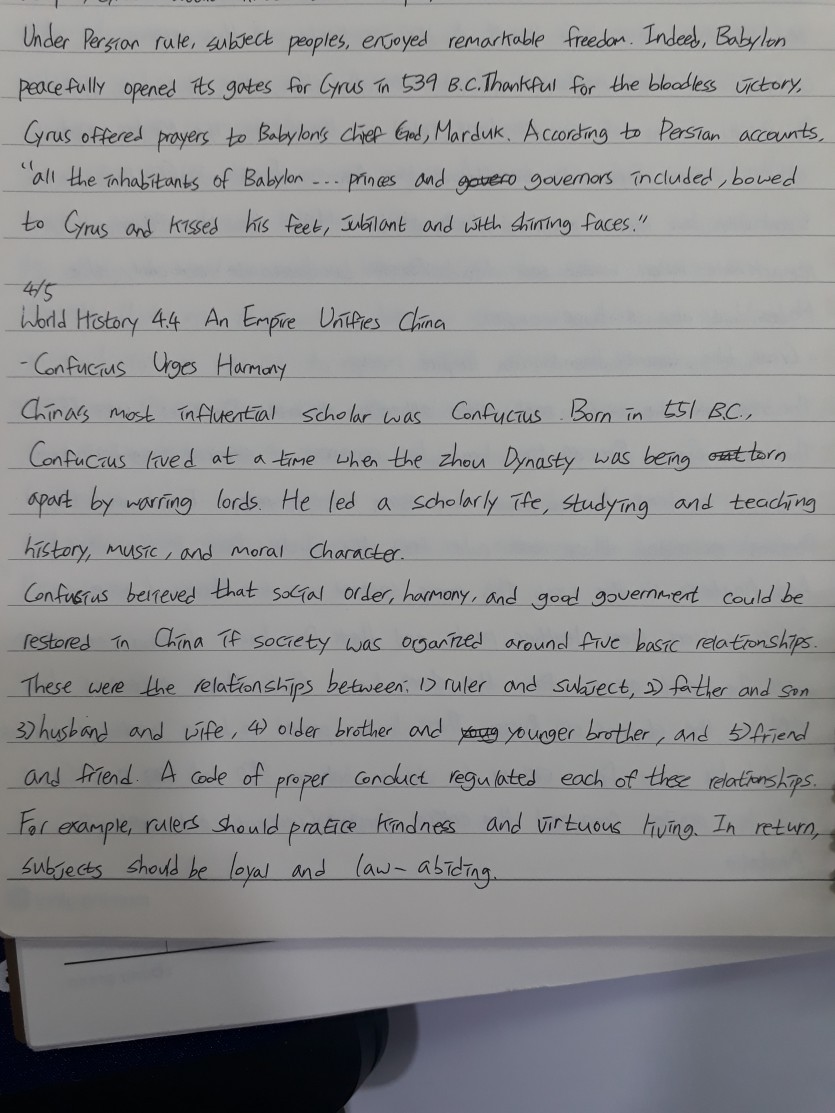 Under Persian rule, subject peoples, enjoyed remarkable freedom. Indeed, Babylon
peacefully opened its gates for Cyrus in 539 B.C. Thankful for the bloodless victory,
Cyrus offered prayers to Babylon's chief God, Marduk. According to Persian accounts,
"all the inhabitants of Babylon --- princes and govero governors included, bowed
to Cyrus and kissed his feet, jubilant and with shining faces."
4/5
World History 4.4 An Empire Unifies China
- Confucius Urges Harmony
China's most influential scholar was Confucius. Born in 551 B.C.,
Confucius lived at a time when the Zhou Dynasty was being out torn
apart by warring lords. He led a scholarly ife, studying and teaching
history, music, and moral character.
Confusius believed that social order, harmony, and good government could be
restored in China if society was organized around five basic relationships.
These were the relationships between: 1) ruler and subject, 2) father and son
3) husband and wife, 4) older brother and youg younger brother, and 5) friend
and friend. A code of proper conduct regulated each of these relationships.
For example, rulers should pratice kindness and virtuous living. In return,
subjects should be loyal and law-abiding.